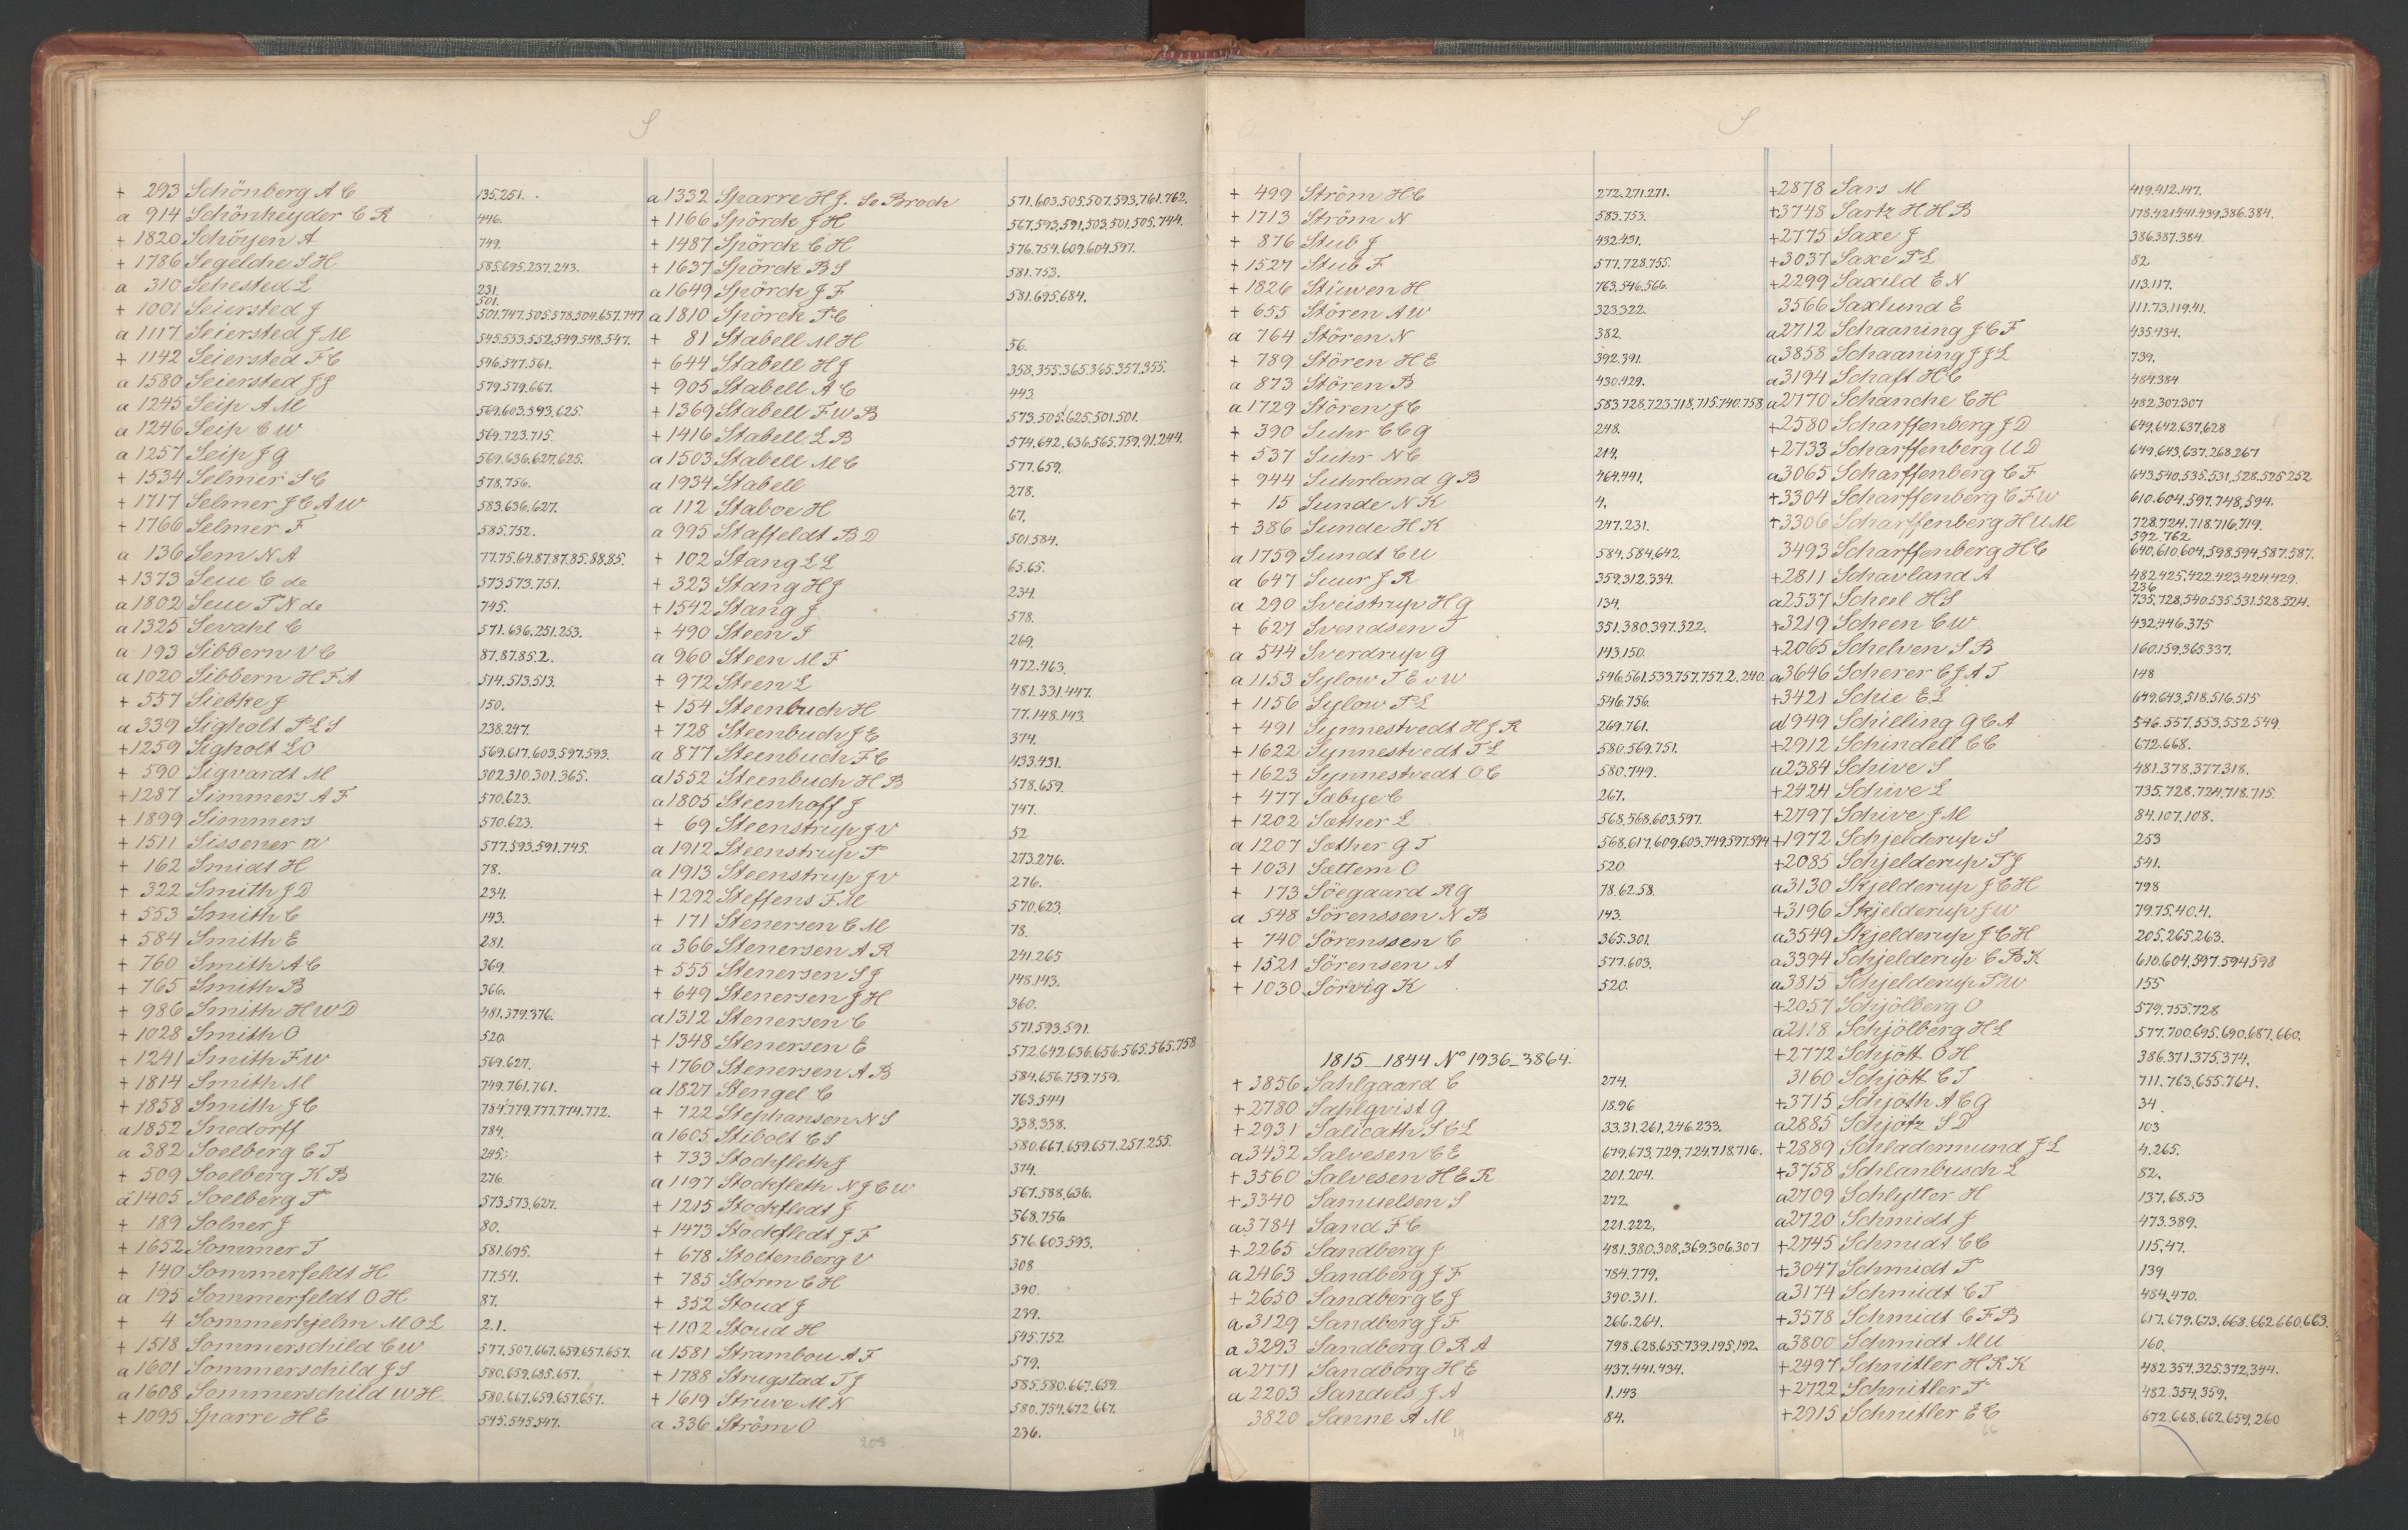 S
+ 293 Schönberg A C 135.251.
a 914 Schönheyder C R 446.
+ 1820 Schöyen A 749.
+ 1786 Segelcke S H 585.695.237.243.
a 310 Sehested L 231.
+ 1001 Seiersted J 501. 501.747.505.578.504.657.747
a 1117 Seiersted J M 545.553.552.549.548.547.
+ 1142 Seiersted F C 546.547.561.
a 1580 Seiersted J J 579.579.667.
a 1245 Seip A M 569.603.593.625.
a 1246 Seip C W 569.723.715.
a 1257 Seip J G 569.636.627.625.
+ 1534 Selmer S C 578.756.
+ 1717 Selmer J C A W 583.636.627.
+ 1766 Selmer F 585.752.
a 136 Sem N A 77.75.64.87.87.85.88.85.
+ 1373 Seue C de 573.573.751.
a 1802 Seue P N de 745.
a 1325 Sevahl C 571.636.251.253.
a 193 Sibbern V C 87.87.85.2.
a 1020 Sibbern H F A 514.513.513.
+ 557 Siebke J 150.
a 339 Sigholt P L S 238.247.
+ 1259 Sigholt L O 569.617.603.597.593.
+ 590 Sigvardt M 302.310.301.365.
+ 1287 Simmers A F 570.623.
+ 1899 Simmers 570.623.
+ 1511 Sissener W 577.593.591.745.
+ 162 Smidt H 78.
+ 322 Smith J D 234.
+ 553 Smith C 143.
+ 584 Smith E 281.
+ 760 Smith A C 369.
+ 765 Smith B 366.
+ 986 Smith H W D 481.379.376.
+ 1028 Smith O 520.
+ 1241 Smith F W 569.627.
+ 1814 Smith M 749.761.761.
+ 1858 Smith J C 784.779.777.774.772.
a 1852 Snedorff 784.
a 382 Soelberg C T 245.
+ 509 Soelberg K B 276.
a 1405 Soelberg P 573.573.627.
+ 189 Solner J 80.
+ 1652 Sommer T 581.675.
+ 140 Sommerfeldt H 77.54.
a 195 Sommerfeldt O H 87.
+ 4 Sommerhjelm M O L 2.1.
+ 1518 Sommerschild C W 577.507.667.659.657.657.
a 1601 Sommerschild J S 580.659.685.657.
a 1608 Sommerschild W H. 580.667.659.657.657.
+ 1095 Sparre H E 545.545.547.
a 1332 Sparre H J. Se Broch 571.603.505.507.593.761.762.
+ 1166 Spörck J H 567.593.591.503.501.505.744.
+ 1487 Spörck C H 576.754.609.604.597.
+ 1637 Spörck B S 581.753.
a 1649 Spörck J F 581.695.684.
a 1810 Spörck P C
+ 81 Stabell M H 56.
+ 644 Stabell H J 358.355.365.365.357.355.
+ 905 Stabell A C 443.
+ 1369 Stabell F W B 573.505.625.501.501.
+ 1416 Stabell L B 574.642.636.565.759.91.244.
a 1503 Stabell M C 577.659.
a 1934 Stabell 278.
a 112 Staboe H 67.
a 995 Staffeldt B D 501.584.
+ 102 Stang L L 65.65.
+ 323 Stang H J 234.
+ 1542 Stang J 578.
+ 490 Steen J 269.
a 960 Steen M F 472.463.
+ 972 Steen L 481.331.447.
+ 154 Steenbuch H 77.148.143.
+ 728 Steenbuch J E 374.
a 877 Steenbuch F C 433.431.
a 1552 Steenbuch H B 578.659.
a 1805 Steenhoff J 747.
+ 69 Steenstrup J V 52
a 1912 Steenstrup P 273.276.
a 1913 Steenstrup J V 276.
+ 1292 Steffens F M 570.623.
+ 171 Stenersen C M 78.
a 366 Stenersen A R 241.265
+ 555 Stenersen S J 148.143.
+ 649 Stenersen J H 360.
a 1312 Stenersen C 571.593.591.
+ 1348 Stenersen E 572.642.636.656.565.565.758
+ 1760 Stenersen A B 584.656.759.759.
a 1827 Stengel C 763.544
+ 722 Stephansen N S 338.338.
a 1605 Stibolt C S 580.667.659.657.257.255.
+ 733 Stockfleth J 374.
a 1197 Stockfleth N J C W 567.588.636.
+ 1215 Stockfledt J 568.756
+ 1473 Stockfledt J F 576.603.593.
+ 678 Stoltenberg V 308
+ 785 Storm C H 390.
+ 352 Stoud J 239.
+ 1102 Stoud H 545.752
a 1581 Strambou A F 579.
+ 1788 Strugstad T J 585.580.667.659
+ 1619 Struve M N 580.754.672.667.
a 336 Ström O 236.
208
S
+ 499 Ström H C 272.271.271.
+ 1713 Ström N 583.753.
+ 876 Stub J 432.431.
+ 1527 Stub F 577.728.755.
+ 1826 Stüwen H 763.546.566.
+ 655 Stören A W 323.322.
a 764 Stören N 382.
+ 789 Stören H E 392.391.
a 873 Stören B 430.429.
a 1729 Stören J C 583.728.723.718.715.740.758.
+ 390 Suhr C C G 248.
+ 537 Suhr N C 214.
+ 944 Suhrland G B 464.441.
+ 15 Sunde N K 4.
+ 386 Sunde H K 247.231.
a 1759 Sundt C U 584.584.642.
a 647 Suur J R 359.312.334.
a 290 Sveistrup H G 134.
+ 627 Svendsen T 351.380.397.322.
a 544 Sverdrup G 143.150.
a 1153 Sylow T E v W 546.561.533.757.757.2.240.
+ 1156 Sylow P L 546.756.
+ 491 Synnestvedt H J R 269.761.
+ 1622 Synnestvedt T L 580.569.751.
+ 1623 Synnestvedt O C 580.749.
+ 477 Sæbye C 267.
+ 1202 Sæther L 568.568.603.597.
a 1207 Sæther G T 568.617.609.603.749.597.594
+ 1031 Sættem O 520.
+ 173 Söegaard R G 78.62.58.
a 548 Sörenssen N B 143.
+ 740 Sörenssen C 365.301.
+ 1521 Sörensen A 577.603.
+ 1030 Sörvig K 520.
1815_1844 No 1936_3864.
+ 3856 Sahlgaard C 274.
+ 2780 Sahlqvist G 18.96
+ 2931 Salicath S C L 33.31.261.246.233.
a 3432 Salvesen C E 679.673.729.724.718.716.
+ 3560 Salvesen H E R 201.204.
+ 3340 Samuelsen S 272.
a 3784 Sand F C 221.222.
+ 2265 Sandberg J 481.380.308.369.306.307
a 2463 Sandberg J F 784.779.
+ 2650 Sandberg C J 390.311.
a 3129 Sandberg J F 266.264.
a 3293 Sandberg O R A 798.628.655.739.195.192.
a 2771 Sandborg H E 437.441.434.
a 2203 Sandels J A 1.143
3820 Sanne A M 84.
14
+ 2878 Sars M 419.412.147.
+ 3748 Sartz H H B 178.421.441.439.386.384.
+ 2775 Saxe J 386.387.384.
+ 3037 Saxe P L 82
+ 2299 Saxild E N 113.117.
3566 Saxlund E 111.73.119.41.
a 2712 Schaaning J C F 435.434.
a 3858 Schaaning J J L 739.
a 3194 Schaft H C 484.384
a 2170 Schanche C H 482.307.307
+ 2580 Scharffenberg J D 649.642.637.628
+ 2733 Scharffenberg U D 649.643.637.268.267
a 3065 Scharffenberg C F 643.540.535.531.528.525.252
+ 3304 Scharffenberg C F W 610.604.597.748.594.
+ 3306 Scharffenberg H U M 728.724.718.716.719.
3493 Scharffenberg H C 592.762 640.610.604.598.594.587.587.
+ 2811 Schavland A 482.425.422.423.424.429.
a 2537 Scheel H S 236 735.728.540.535.531.528.524.
+ 3219 Scheen C W 432.446.375
+ 2065 Schelven S B 160.159.365.337.
a 3646 Scherer C J A T 148
+ 3421 Schie E L 649.643.518.516.515
a 1949 Schieling G C A 546.557.553.552.549
+ 2912 Schindell C C 672.668.
a 2384 Schive S 481.378.377.318.
+ 2424 Schive L 735.728.724.718.715.
+ 2797 Schive J M 84.107.108.
+ 1972 Schjelderup S 253
+ 2085 Schjelderup P J 541.
a 3130 Skjelderup J C H 798
+ 3196 Skjelderup J W 79.75.40.4.
a 3549 Skjelderup J C H 205.265.263.
a 3394 Schjelderup C B K 610.604.597.594.598
a 3815 Schjelderup P W 155
+ 2057 Schjölberg O 579.755.728
a 2118 Schjölberg H L 577.700.695.690.687.660.
+ 2772 Schjött O H 386.371.375.374.
3160 Schjött C T 711.763.655.764.
+ 3715 Schjöth A C G 34.
a 2885 Schjötz S D 103
+ 2889 Schladermund J L 4.265.
+ 3758 Schlanbusch L 82.
a 2709 Schlytter H 137.68.53
a 2720 Schmidt J 473.389.
+ 2745 Schmidt C C 115.47.
+ 3047 Schmidt P 139
a 3174 Schmidt C T 484.470.
+ 3578 Schmidt C F B 617.679.673.668.662.660.663.
a 3800 Schmidt M U 160.
+ 2497 Schnitler H R K 482.354.325.372.344.
+ 2722 Schnitler P 482.354.359.
+ 2915 Schnitler E C 672.668.662.659.260
66